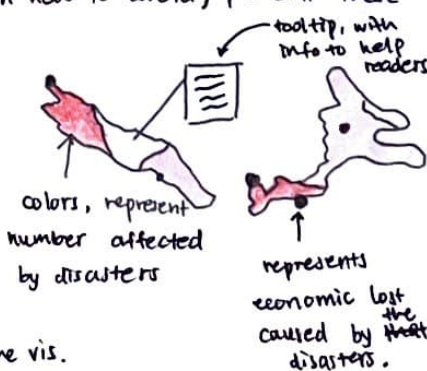 tooltip, with
info to help
readers
colors, represent
number affected
by disasters
represents
economic lost
the
caused by
disasters.
e vis.